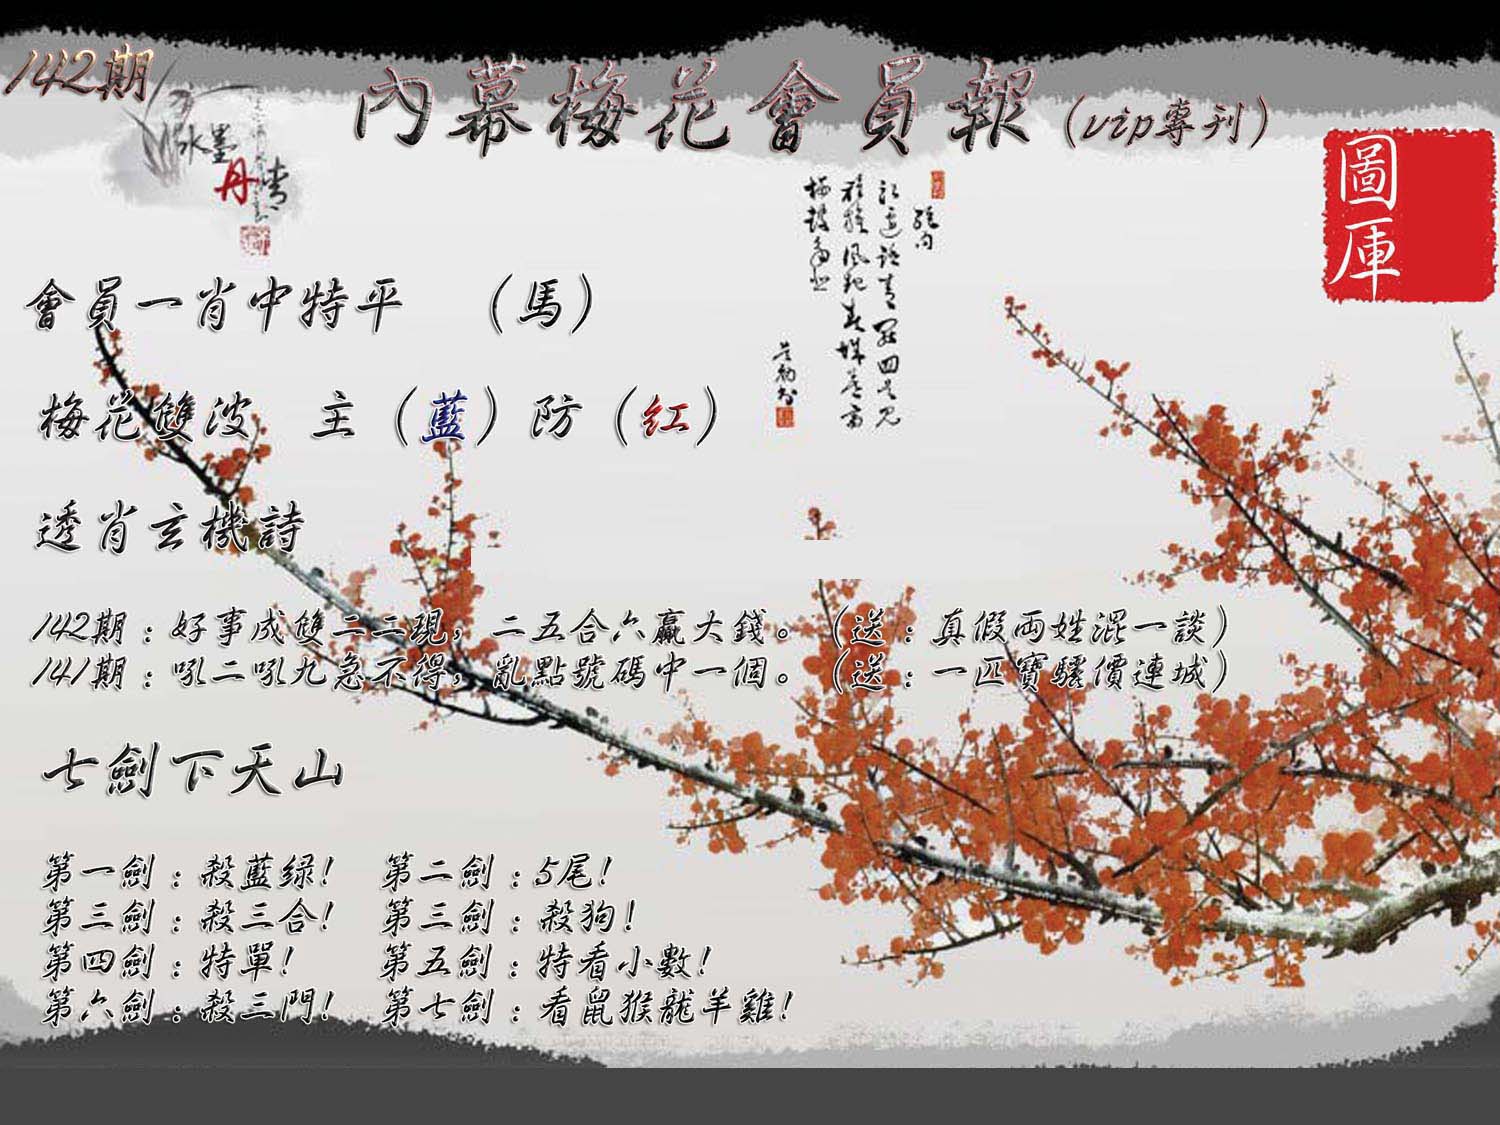 142期
內幕梅花會員報(vip專刊)
水墨
丹青
圖庫
會員一肖中特平 (馬)
梅花雙波 主(藍)防(紅)
透肖玄機詩
142期:好事成雙二二現,二五合六贏大錢。(送:真假両姓混一談)
141期:吼二吼九急不得,亂點號碼中一個。(送:一匹寶驛價連城)
七劍下天山
第一劍:殺藍绿! 第二劍:5尾!
第三劍:殺三合! 第三劍:殺狗!
第四劍:特單! 第五劍:特看小數!
第六劍:殺三門! 第七劍:看鼠猴龍羊雞!